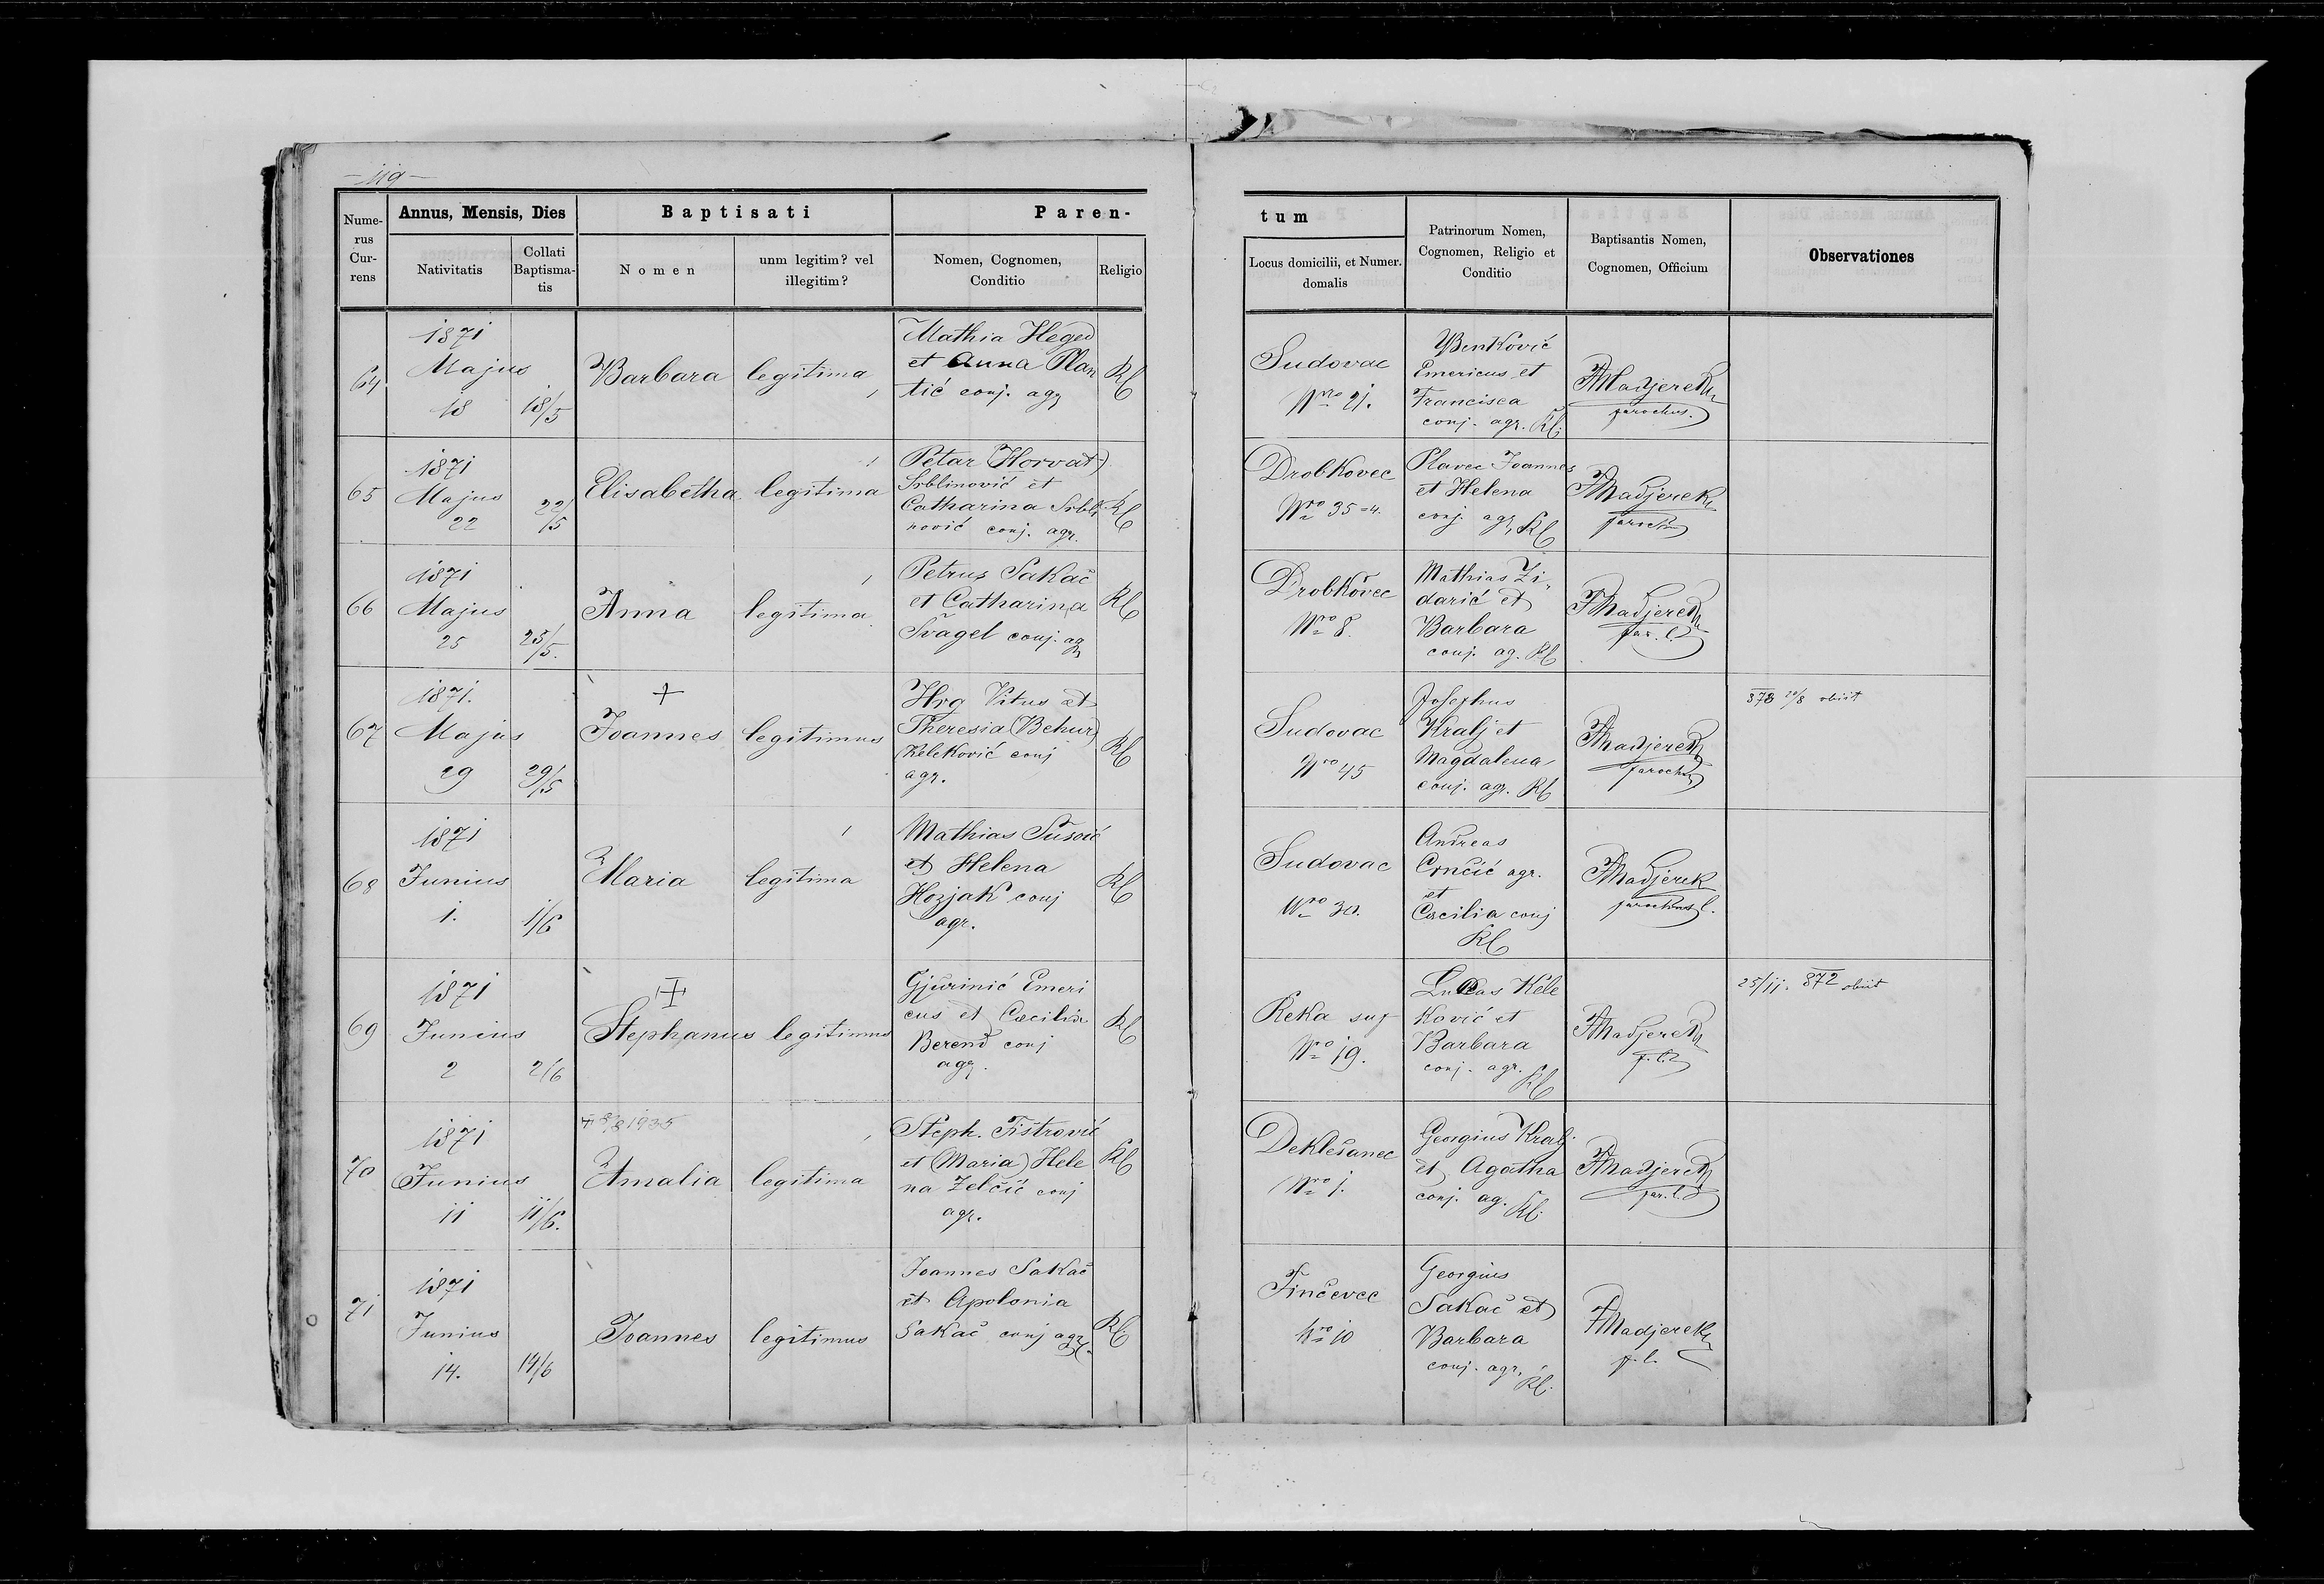 - 119 -
Nume-
rus
Cur-
rens
Annus, Mensis, Dies
Nativitatis
Collati
Baptisma-
tis
Baptisati
Nomen
unm legitim? vel
illegitim?
Paren-
Nomen, Cognomen,
Conditio
Religio
tum
Locus domicilii, et Numer.
domalis
Patrinorum Nomen,
Cognomen, Religio et
Conditio
Baptisantis Nomen,
Cognomen, Officium
Observationes
64
1871
Majus
18
18/5
Barbara
legitima
Mathia Heged
et Anna Plan
tić conj. agr
RC
Sudovac
Nro 21.
Benković
Emericus et
Francisca
conj. agr. RC.
Madjerek
parochus.
65
1871
Majus
22
22/5
Elisabetha
legitima
Petar (Horvat)
Srblinović et
Catharina Srbli
nović conj. agr.
RC
Drobkovec
Nro 35=4.
Plavec Joannes
et Helena
conj. agr. RC
Madjerek
66
1871
Majus
25
25/5.
Anna
legitima
Petrus Sakač
et Catharina
Svagel conj. ag
RC
Drobkovec
Nro 8.
Mathias Zi-
darić et
Barbara
conj. ag. RC
Madjerek
67
1871.
Majus
29
29/5
+
Joannes
legitimus
Hrg Vitus et
Theresia (Behur)
Keleković conj
agr.
RC
Sudovac
Nro 45
Josephus
Kralj et
Magdalena
conj. agr. RC
Madjerek
obiit
68
1871
Junius
1.
1/6
Maria
legitima
Mathias
et Helena
Hozjak conj
agr.
RC
Sudovac
Nro 30.
Andreas
Crnčić agr.
et
Cæcilia conj
RC
Madjerek
69
1871
Junius
2
2/6
+
Stephanus
legitimus
Gjurinić Emeri
cus et Cæcilia
Berend conj
agr.
RC
Reka sup
Nro 19.
Lucas Kele
ković et
Barbara
conj. agr. RC
Madjerek
25/11. 872 obiit
70
1871
Junius
11
11/6.
1935
Amalia
legitima
Steph. Fištrović
et (Maria) Hele
na Zelčić conj
agr.
RC
Deklešanec
Nro 1.
Georgius Kralj
et Agatha
conj. ag. RC.
Madjerek
71
1871
Junius
14.
14/6
Joannes
legitimus
Joannes Sakač
et Apolonia
Sakač conj agr
RC
Finčevec
Nro 10
Georgius
Sakač et
Barbara
conj. agr. RC.
Madjerek